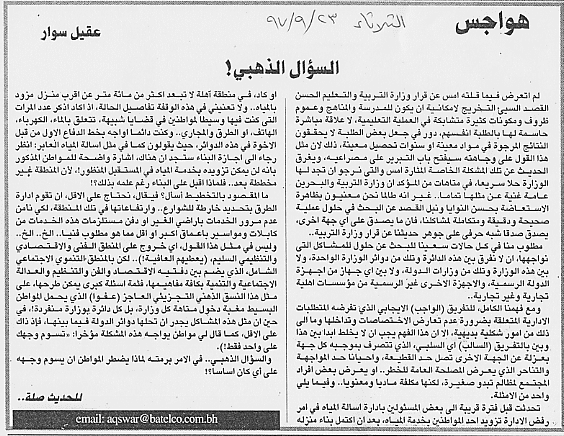 هواجس
الثلاثاء ٩٧/٩/٢٣
عقيل سوار
السؤال الذهبي!
لم اتعرض فيما قلته امس عن قرار وزارة التربية والتعليم الحسن
القصد السيئ التخريج لامكانية ان يكون للمدرسة والمناهج وعموم
ظروف ومكونات كثيرة متشابكة في العملية التعليمية، لا علاقة مباشرة
حاسمة لها بالطلبة انفسهم، دور في جعل بعض الطلبة لا يحققون
النتائج المرجوة في مواد معينة او سنوات تحصيل معينة، ذلك لان مثل
هذا القول على وجاهته سيفتح باب التبرير على مصراعيه، ويغرق
الحديث عن تلك المشكلة الخاصة المثارة امس والتي نرجو ان تجد لها
الوزارة حلا سريعا، في متاهات من المؤكد ان وزارة التربية والبحرين
عامة غنية عن مثلها تماما.. غير انه طالما نحن معنيون بظاهرة
الاستعاضة بحسن النوايا ونبل القصد عن البحث في حلول عملية
صحيحة ودقيقة ومتكاملة لمشاكلنا، فان ما يصدق على أي جهة اخرى،
يصدق صدقا شبه حرفي على جوهر حديثنا عن قرار وزارة التربية..
مطلوب منا في كل حالات سعينا للبحث عن حلول للمشاكل التي
نواجهها، ان لا نفرق بين هذه الدائرة وتلك من دوائر الوزارة الواحدة، ولا
بين هذه الوزارة وتلك من وزارات الدولة، ولا بين اي جهاز من اجهزة
الدولة الرسمية، والاجهزة الاخرى غير الرسمية من مؤسسات اهلية
تجارية وغير تجارية..
ومع فهمنا الكامل، للتفريق (الواجب) الايجابي الذي تفرضه المتطلبات
الادارية المتعلقة بضرورة عدم تعارض الاختصاصات وتداخلها وما الى
ذلك من امور شكلية بديهية، الا ان هذا الفهم يجب ان لا يخلط ابدا بين هذا
وبين والتفريق (السالب) أي السلبي، الذي تتصرف بموجبه كل جهة
بعزلة عن الجهة الاخرى تصل حد القطيعة، واحيانا حد المواجهة
والتناحر الذي يعرض المصلحة العامة للخطر.. او يعرض بعض افراد
المجتمع لمظالم تبدو صغيرة، لكنها مكلفة ماديا ومعنويا.. وفيما يلي
واحد من الامثلة.
تحدثت قبل فترة قريبة الى بعض المسئولين بادارة اسالة المياه في امر
رفض الادارة تزويد احد المواطنين بخدمة المياه، بعد ان اكتمل بناء منزله
او كاد، في منطقة آهلة لا تبعد اكثر من مائة متر عن اقرب منزل مزود
بالمياه.. ولا تعنيني في هذه الوقفة تفاصيل الحالة، اذ اكاد اذكر عدد المرات
التي كنت فيها وسيطا لمواطنين في قضايا شبيهة، تتعلق بالماء، الكهرباء،
الهاتف، او الطرق والمجاري.. وكنت دائما اواجه بخط الدفاع الاول من قبل
الاخوة في هذه الدوائر، حيث يقولون كما في مثل اسالة المياه العابر: انظر
رجاء الى اجازة البناء ستجد ان هناك، اشارة واضحة للمواطن المذكور
بانه لن يمكن تزويده بخدمة المياه في المستقبل المنظور!، لان المنطقة غير
مخططة بعد.. فلماذا اقبل على البناء رغم علمه بذلك؟!
ما المقصود بالتخطيط أسأل؟ فيقال، نحتاج على الاقل، ان تقوم ادارة
الطرق بتحديد خارطة للشوارع.. وارتفاعاتها في تلك المنطقة، لكي نأمن
عدم مرور الخدمات باراضي الغير او دفن مستلزمات هذه الخدمات من
كابلات ومواسير باعماق اكبر او اقل مما هو مطلوب فنيا.. الخ.. الخ..
وليس في مثل هذا القول، اي خروج على المنطق الفني والاقتصادي
والتنظيمي السليم، (يعطيهم العافية!).. لكن بالمنطق التنموي الاجتماعي
الشامل، الذي يضم بين دفتيه الاقتصاد والفن والتنظيم والعدالة
الاجتماعية والتنمية بكافة مفاهيمها، فثمة اسئلة كبرى يمكن طرحها، على
مثل هذا النسق الذهني التجزيئي العاجز (عفوا) الذي يحمل المواطن
البسيط مغبة دخول متاهة كل وزارة، بل كل دائرة بوزارة منفردة!، في
حين ان مثل هذه المشاكل يجدر ان تحلها دوائر الدولة فيما بينها، فإذ ذاك
على الاقل، كما قال لي مواطن يواجه هذه المشكلة مؤخرا: «تسوم وجهك
على واحد فقط!).
والسؤال الذهبي.. في الامر برمته لماذا يضطر المواطن ان يسوم وجهه
على أي كان اساسا؟!
للحديث صلة..
email: aqswar@batelco.com.bh